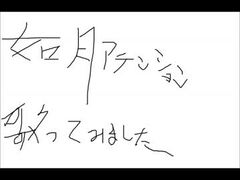 如月アテンション
歌ってみました